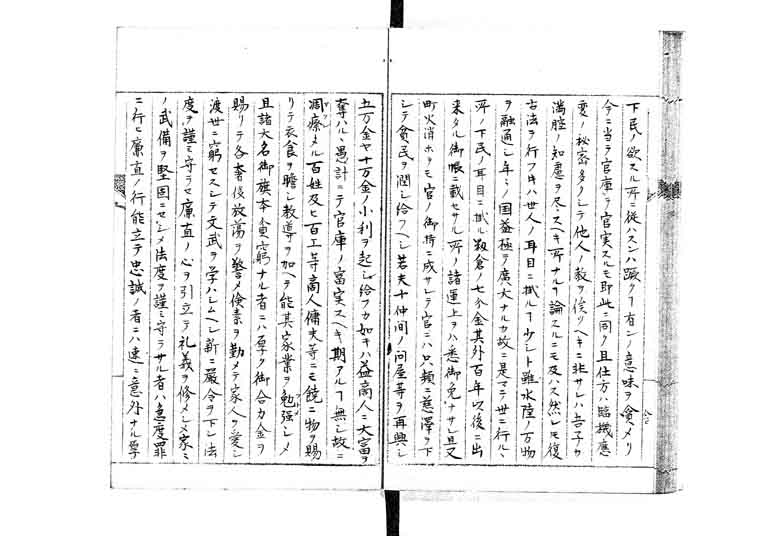 下民ノ欲スル所ニ従ハスンハ蹶クヿ有ンノ意味ヲ貪メリ
今ニ当テ官庫ヲ官実スルモ即此ニ同ク且仕方ハ臨機應
変ノ秘密多クシテ他人ノ教ヲ俟ツヘキニ非サレハ吾子カ
満腔ノ知慮ヲ尽スヘキ所ナルヿ論スルニモ及ハス然レモ復
古法ヲ行フキハ世人ノ耳目ニ掛ルヿ少シト雖水陸ノ万物
ヲ融通シ年々ノ国益極テ廣大ナルカ故ニ是マテ世ニ行ルヽ
所ノ下民ノ耳目ニ掛ル数倉ノ七分金其外百年以後ニ出
来タル御帳ニ載セサル所ノ諸運上ヲハ悉御免ナサレ且又
町火消ホヲモ官ノ御持ニ成サレテ官ニハ只頻ニ慈澤ヲ下
シテ貧民ヲ潤シ給フヘシ若夫十仲間ノ問屋等ヲ再興シ
五万金ヤ十万金ノ小利ヲ起シ給フカ如キハ益商人ニ大富ヲ
奪ハルヽ愚計ニテ官庫ノ富実スヘキ期アルヿ無シ故ニ
凋瘵タル百姓及ヒ百工等商人傭夫等ニモ饒ニ物ヲ賜
リテ衣食ヲ贍シ教導ヲ加ヘテ能其家業ヲ勉強セシメ
且諸大名御旗本ノ貧窮ナル者ニハ厚ク御合力金ヲ
賜リテ各奢侈放蕩ヲ警メ倹素ヲ勤メテ家人ヲ愛シ
渡世ニ窮セスシテ文武ヲ学ハシムヘシ新ニ嚴令ヲ下シ法
度ヲ謹ミ守ラセ廉直ノ心ヲ引立テ礼義ヲ修メシメ家々
ノ武備ヲ堅固ニセシメ法度ヲ謹ミ守ラサル者ハ急度罪
ニ行ヒ廉直ノ行能立テ忠誠ノ者ニハ速ニ意外ナル厚